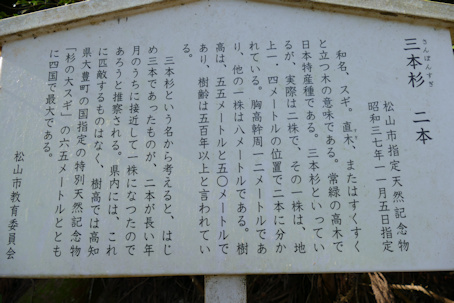 さんぼんすぎ
三本杉　二本
松山市指定天然記念物
昭和三七年一一月五日指定
和名、スギ。直木、またはすくすく
と立つ木の意味である。常緑の高木で
日本特産種である。三本杉といってい
るが、実際は二株で、その一株は、地
上一、四メートルの位置で二本に分か
れている。胸高幹周一二メートルであ
り、他の一株は八メートルである。樹
高は、五五メートルと五〇メートルで
あり、樹齢は五百年以上と言われてい
る。
三本杉という名から考えると、はじ
め三本であったものが、二本が長い年
月のうちに接近して一株になったので
あろうと推察される。県内には、これ
に匹敵するものはなく、樹高では高知
県大豊町の国指定の特別天然記念物
「杉の大スギ」の六五メートルととも
に四国で最大である。
松山市教育委員会